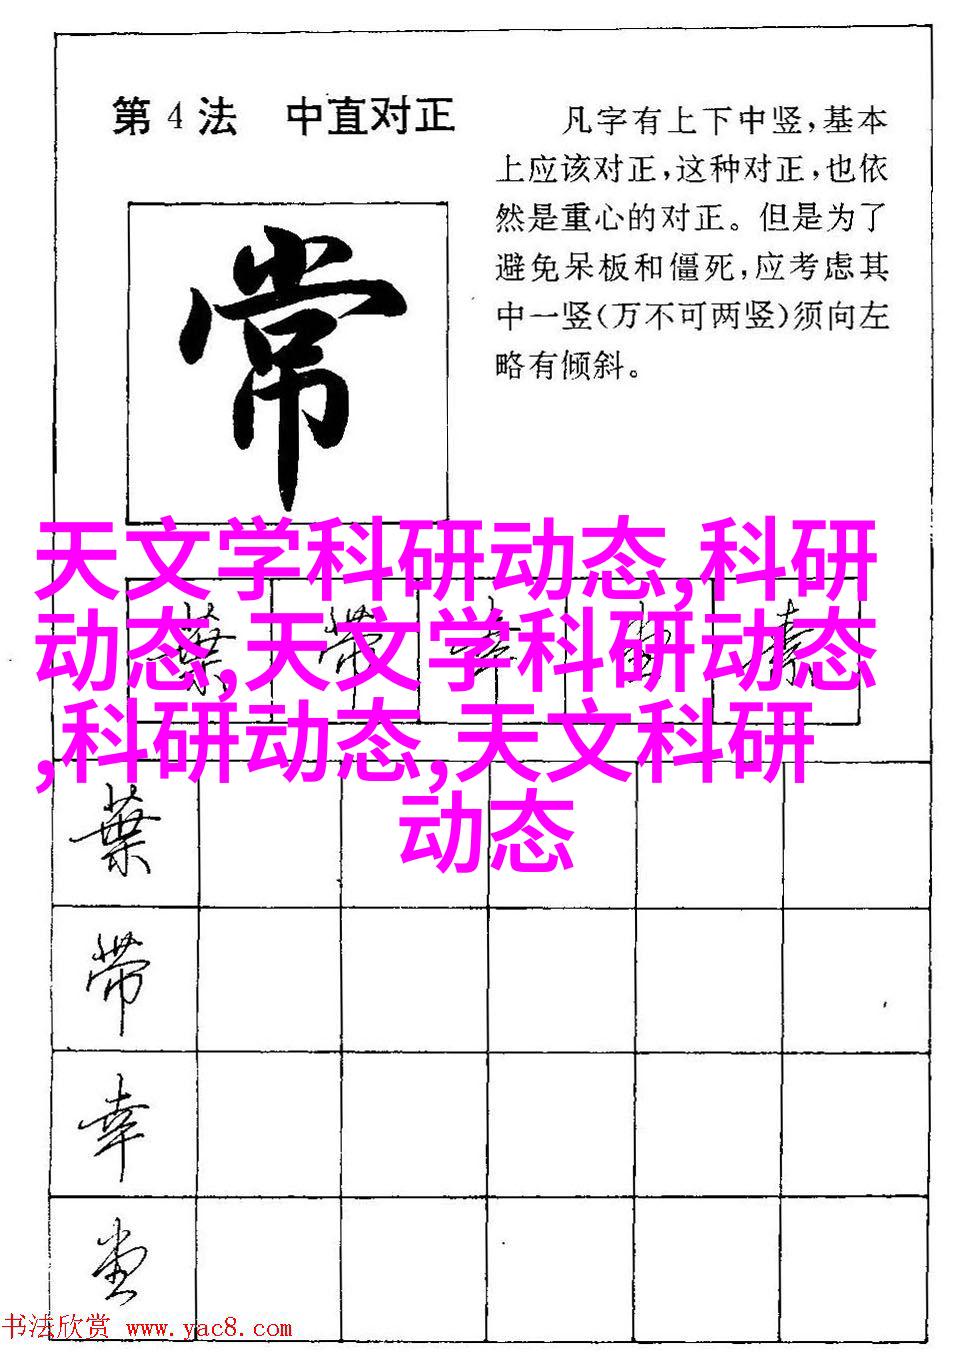 第4法 中直对正
凡字有上下中竖,基本
上应该对正,这种对正,也依
然是重心的对正。但是为了
避免呆板和僵死,应考虑其
中一竖(万不可两竖)须向左
略有倾斜。
常
天文学科研动态,科研
动态,天文学科研动态
,科研动态,天文科研
动态
葉 帶 幸 素
葉
帶
幸
堂
书法欣赏 www.yac8.com